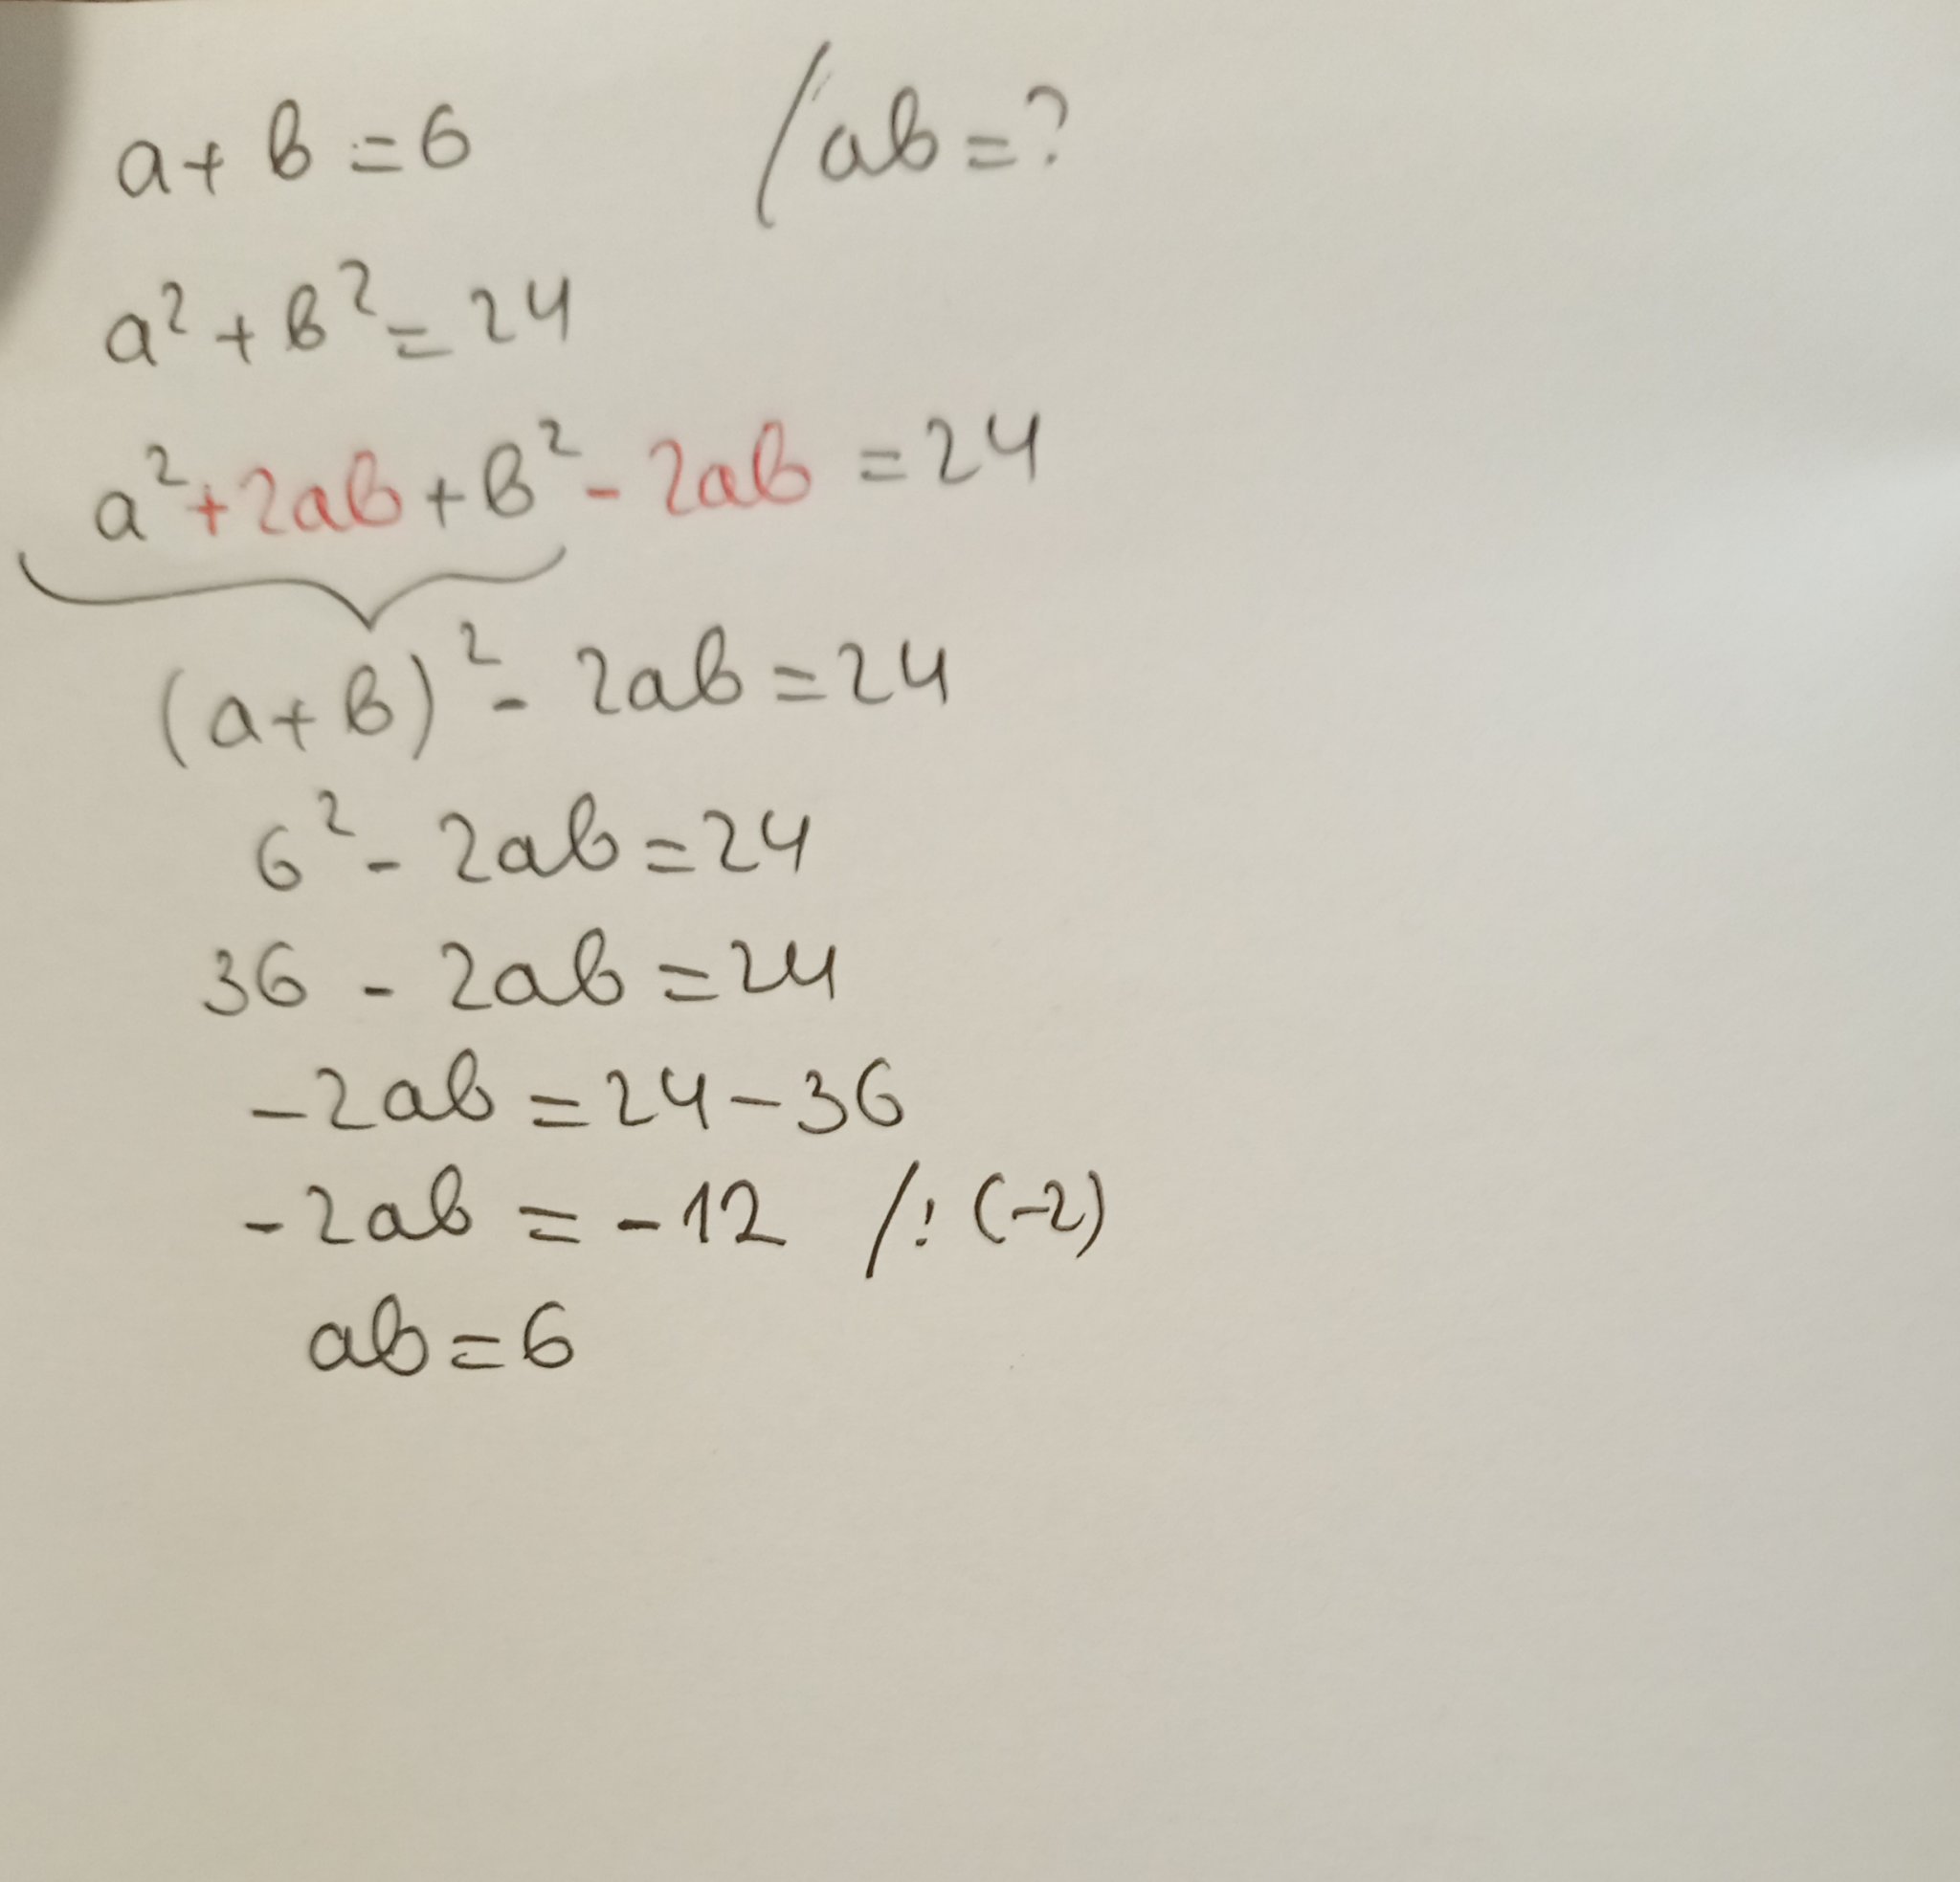 a + b = 6 / ab = ?
a² + b² = 24
a² + 2ab + b² - 2ab = 24
(a + b)² - 2ab = 24
6² - 2ab = 24
36 - 2ab = 24
-2ab = 24 - 36
-2ab = -12 /: (-2)
ab = 6